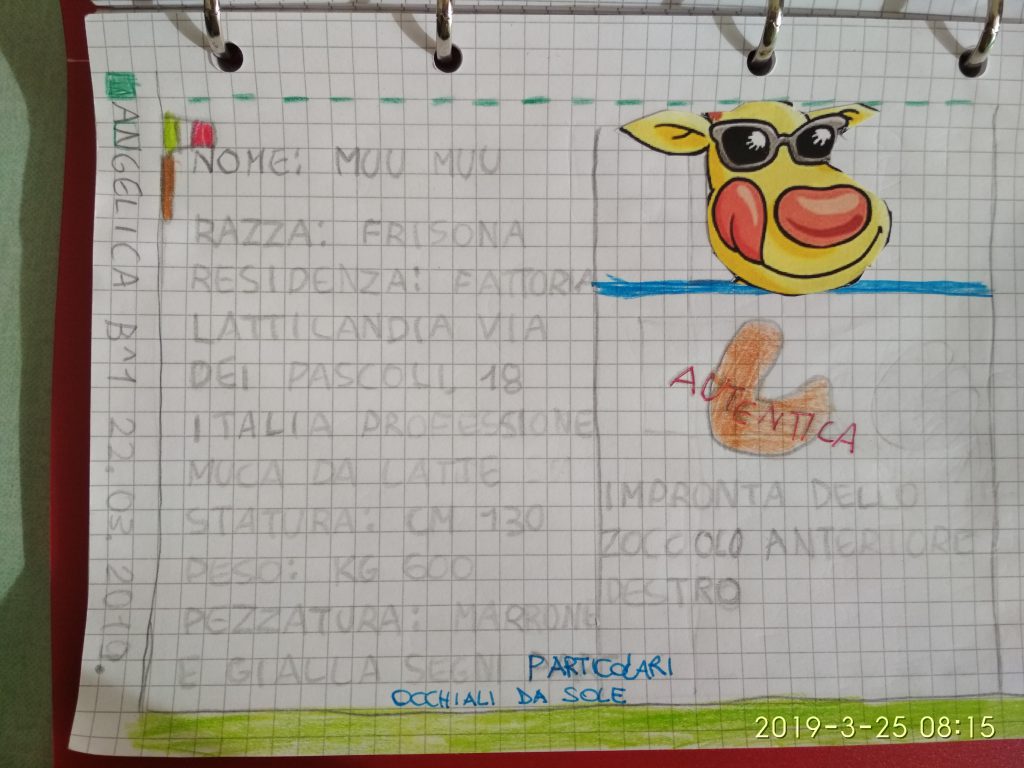 ANGELICA B^1 22.03.2019.
NOME: MUU MUU
RAZZA: FRISONA
RESIDENZA: FATTORIA
LATTILANDIA VIA
DEI PASCOLI, 18
ITALIA PROFESSIONE
MUCA DA LATTE
STATURA: CM 130
PESO: KG 600
PEZZATURA: MARRONE
E GIALLA SEGNI PARTICOLARI
OCCHIALI DA SOLE
AUTENTICA
IMPRONTA DELLO
ZOCCOLO ANTERIORE
DESTRO
2019-3-25 08:15